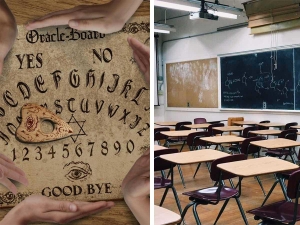 Oracle-Board
YES NO
ABCDEFGHIJKLM
NOPQRSTUVWXYZ
1234567890
GOOD BYE